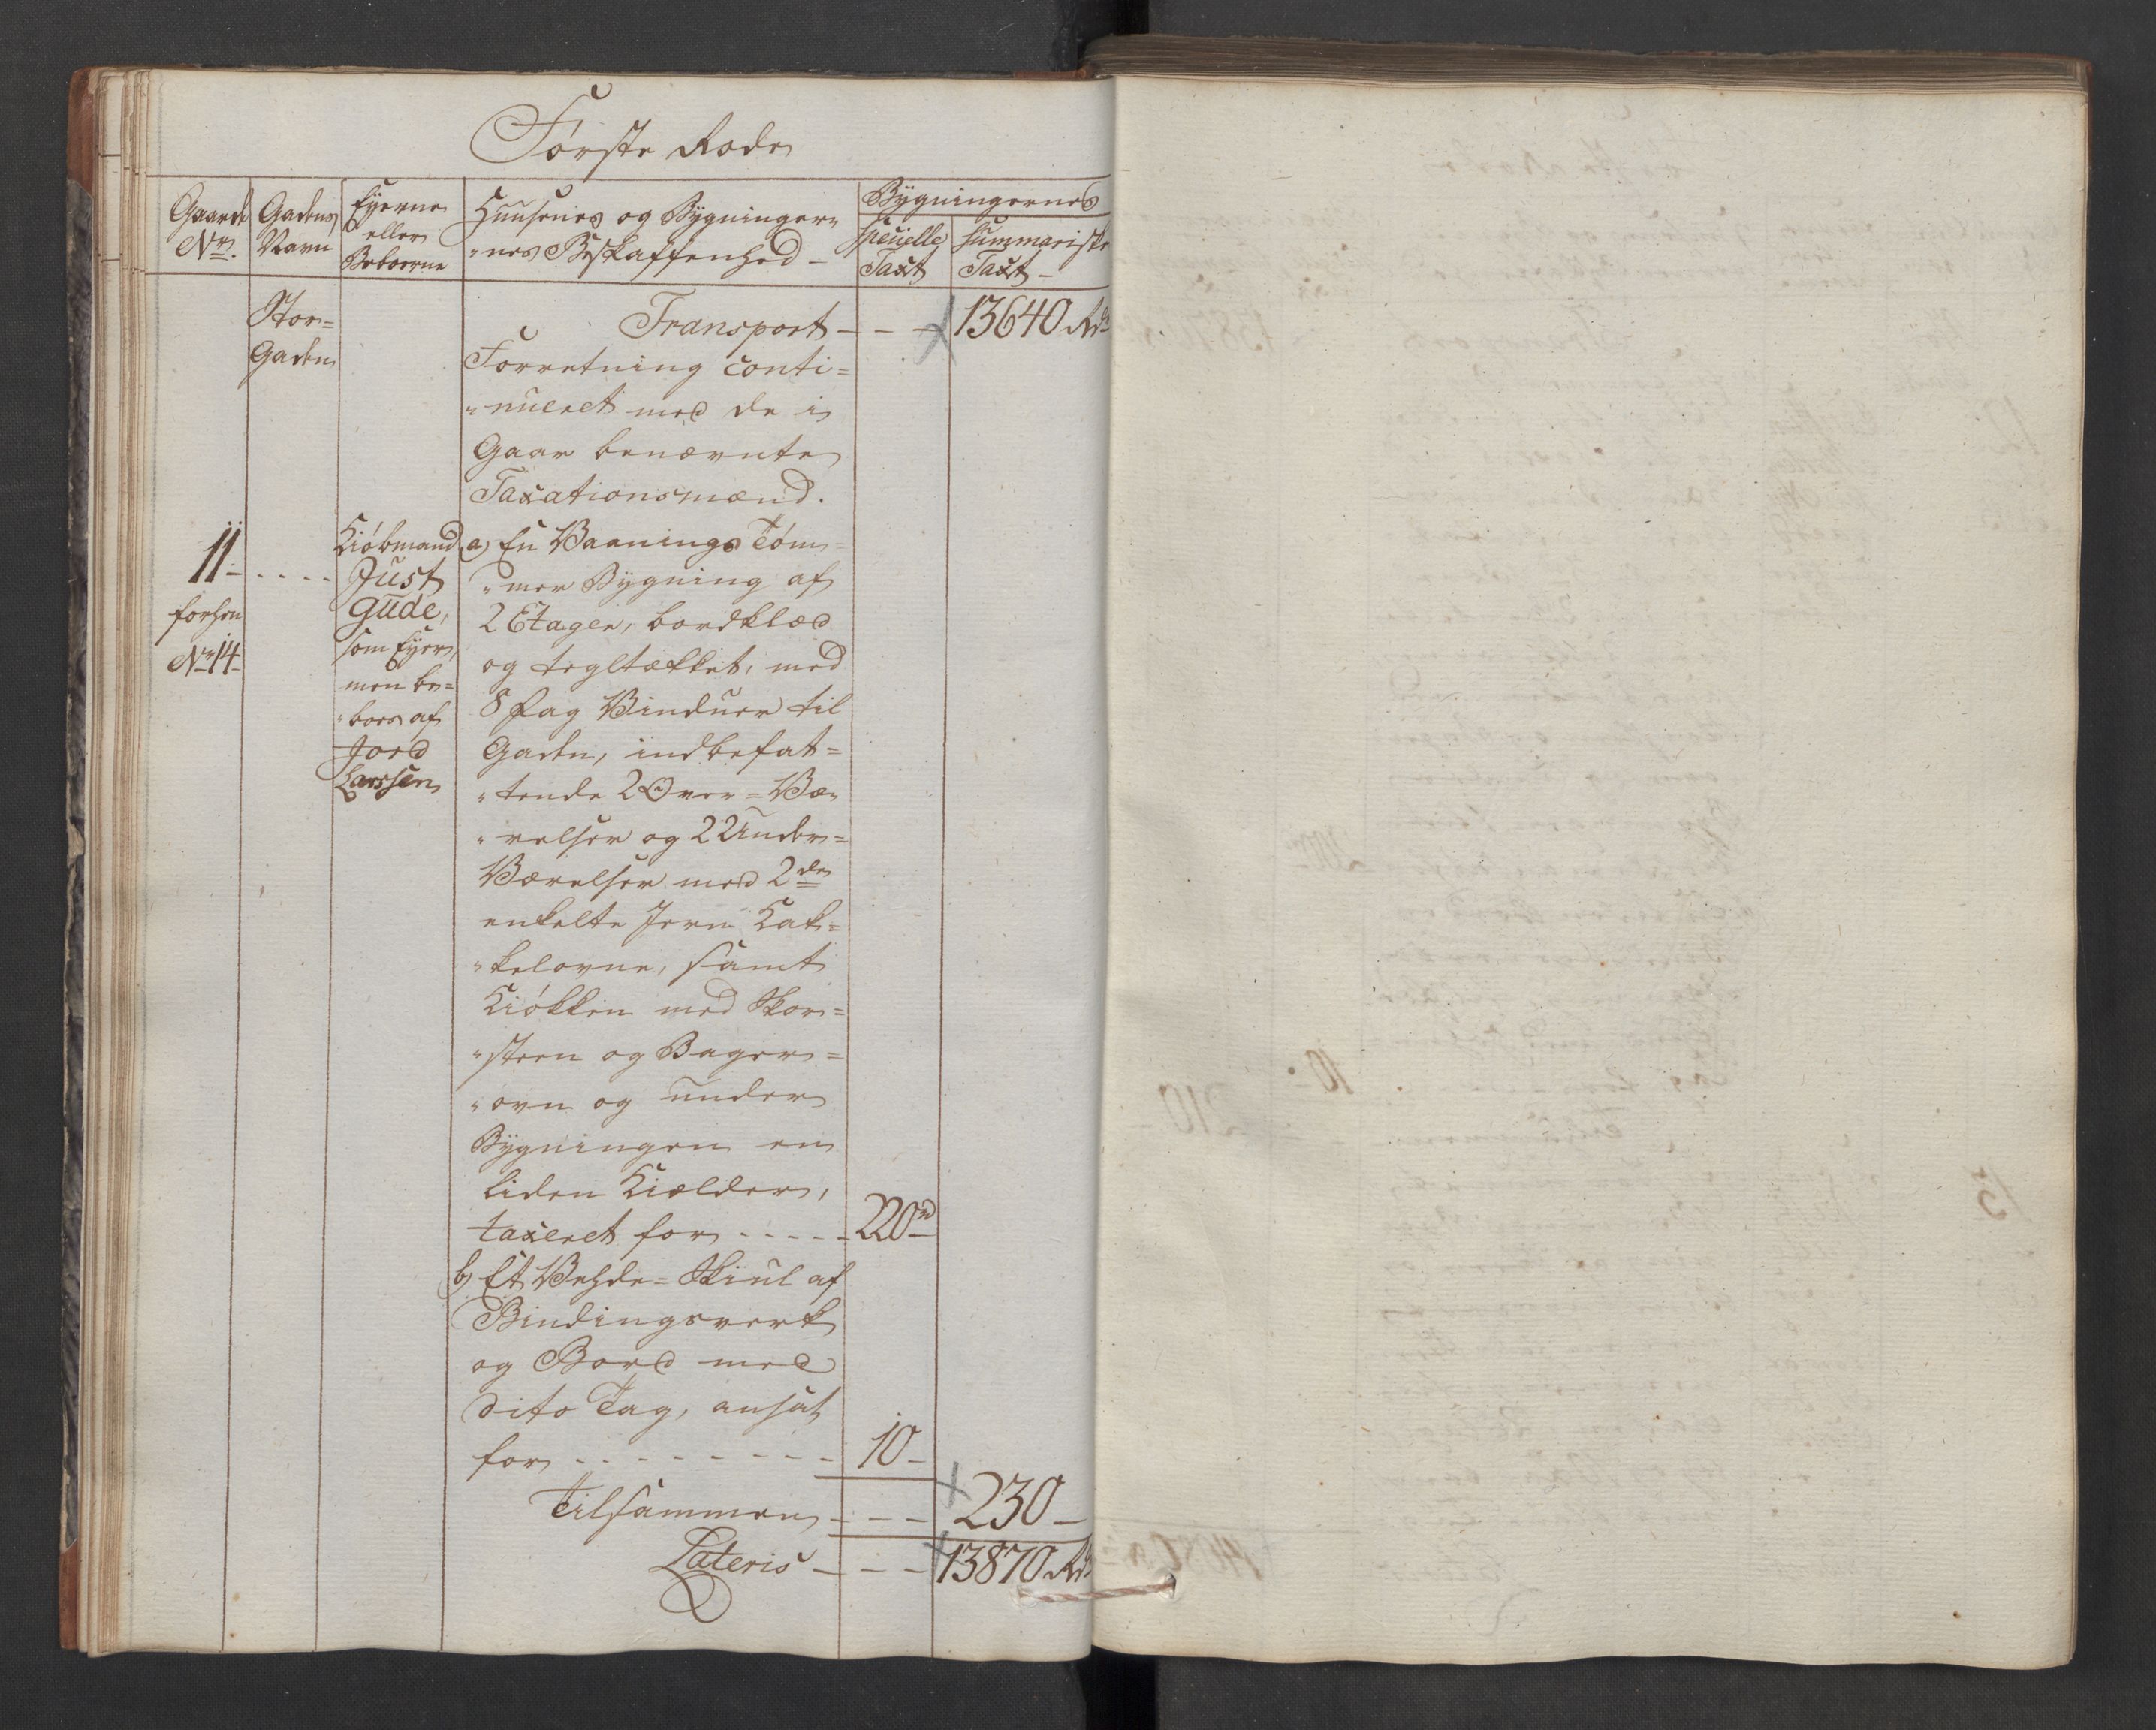 Første Rode
Gaards Nr.
Gadens Navn
Eyerne eller Beboerne
Huusenes og Bygninger-
"nes Beskaffenhed -
Bygningernes
specielle Taxt
summariske Taxt -
Stor=
Gaden
Transport - - - 13640 Rd
Forretning conti=
"nueret med de i
Gaar benævnte
Taxationsmænd.
11 - . . . .
forhen
No 14
Kiøbmand
Just
Gude,
som Eyer,
men be=
"boes af
Jord
Larssen
a) En Vaanings Tøm=
"mer Bygning af
2 Etager, bordklæd
og tegltækket, med
8 Fag Vinduer til
Gaden, indbefat=
"tende 2 Over=Væ-
"relser og 2 Under=
Værelser med 2de
enkelte Jern Kak=
"kelovne, samt
Kiøkken med Skor=
"steen og Bager=
"ovn og under
Bygningen en
liden Kielder,
taxeret for - - - - - 220rd
b) Et Vehde=Skiul af
Bindingsverk
og Bord med
dito Tag, ansat
for - - - - - - - - 10 -
Tilsammen - - - 230 -
Lateris - - - 13870 Rd